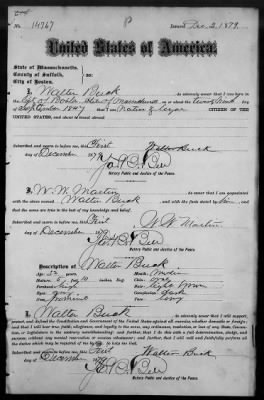 No. 14267
Issued Dec. 2, 1879
United States of America.
State of Massachusetts,
County of Suffolk,
City of Boston.
ss:
I, Walter Buck
do solemnly swear that I was born in
the City of Boston, State of Massachusetts on or about the
day of
September 1847
that I am a Native
CITIZEN OF THE
UNITED STATES, and about to travel abroad
Subscribed and sworn to before me, this First
day of December 1879
Walter Buck
Notary Public and Justice of the Peace.
I, W. W. Martin
do solemnly swear that I am acquainted
with the above named Walter Buck
and with the facts stated by him
Subscribed and sworn to before me, this First
day of December 1879
W. W. Martin
Notary Public and Justice of the Peace.
Description of Walter Buck
Age: 32 years
Stature: 5 ft. 10 in.
Forehead: high
Eyes: gray
Nose: prominent
Mouth: medium
Chin: oval
Hair: light brown
Complexion: dark
Face: long
I, Walter Buck
do solemnly swear that I will support,
protect, and defend the Constitution and Government of the United States against all enemies, whether domestic or foreign;
and that I will bear true faith, allegiance, and loyalty to the same, any ordinance, resolution, or law of any State, Convention,
or Legislature to the contrary notwithstanding; and further, that I do this with a full determination, pledge, and
purpose, without any mental reservation or evasion whatsoever; and further, that I will well and faithfully perform all
the duties which may be required of me by law: So help me God.
Subscribed and sworn to before me, this First
day of December 1879
Walter Buck
Notary Public and Justice of the Peace.